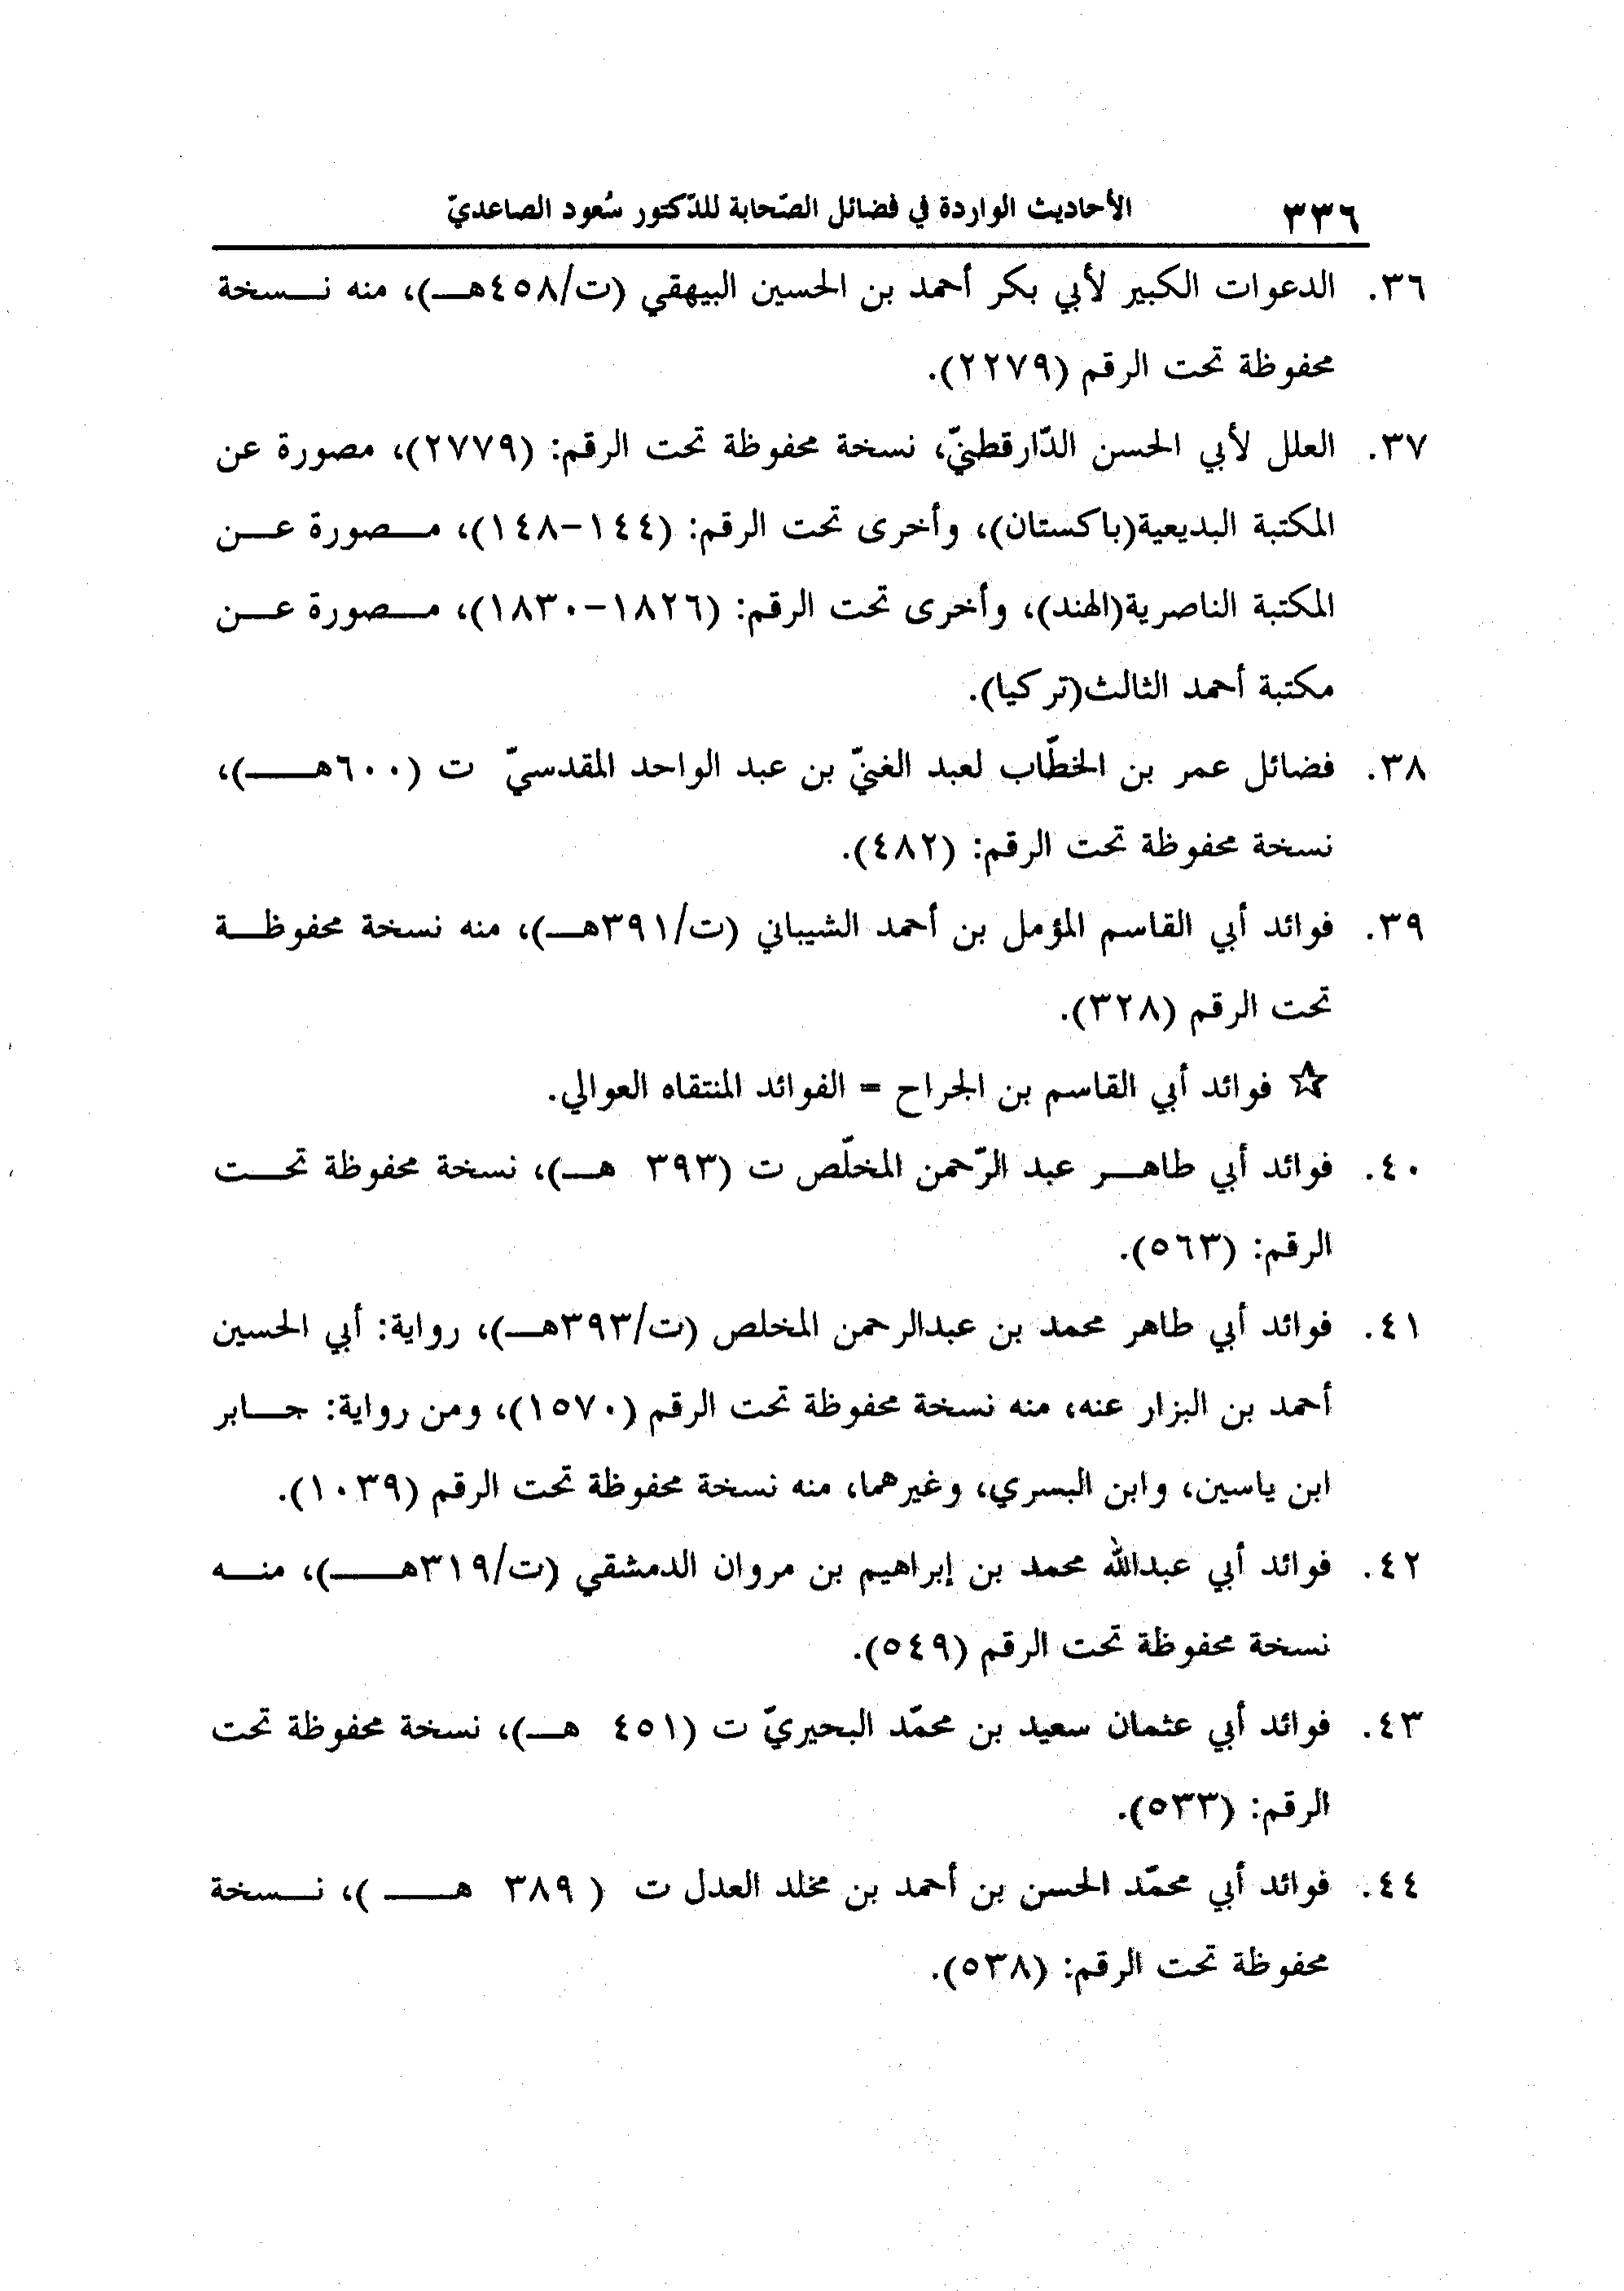 ٣٣٦ الأحاديث الواردة في فضائل الصّحابة للدّكتور سُعود الصاعديّ
٣٦. الدعوات الكبير لأبي بكر أحمد بن الحسين البيهقي (ت/٤٥٨هـ)، منه نسخة
محفوظة تحت الرقم (٢٢٧٩).
٣٧. العلل لأبي الحسن الدّارقطنيّ، نسخة محفوظة تحت الرقم: (٢٧٧٩)، مصورة عن
المكتبة البديعية(باكستان)، وأخرى تحت الرقم: (١٤٤-١٤٨)، مصورة عن
المكتبة الناصرية(الهند)، وأخرى تحت الرقم: (١٨٢٦-١٨٣٠)، مصورة عن
مكتبة أحمد الثالث(تركيا).
٣٨. فضائل عمر بن الخطّاب لعبد الغنيّ بن عبد الواحد المقدسيّ ت (٦٠٠هـ)،
نسخة محفوظة تحت الرقم: (٤٨٢).
٣٩. فوائد أبي القاسم المؤمل بن أحمد الشيباني (ت/٣٩١هـ)، منه نسخة محفوظة
تحت الرقم (٣٢٨).
☆ فوائد أبي القاسم بن الجراح = الفوائد المنتقاه العوالي.
٤٠. فوائد أبي طاهر عبد الرّحمن المخلّص ت (٣٩٣ هـ)، نسخة محفوظة تحت
الرقم: (٥٦٣).
٤١. فوائد أبي طاهر محمد بن عبدالرحمن المخلص (ت/٣٩٣هـ)، رواية: أبي الحسين
أحمد بن البزار عنه، منه نسخة محفوظة تحت الرقم (١٥٧٠)، ومن رواية: جابر
ابن ياسين، وابن البسري، وغيرهما، منه نسخة محفوظة تحت الرقم (١٠٣٩).
٤٢. فوائد أبي عبدالله محمد بن إبراهيم بن مروان الدمشقي (ت/٣١٩هـ)، منه
نسخة محفوظة تحت الرقم (٥٤٩).
٤٣. فوائد أبي عثمان سعيد بن محمّد البحيريّ ت (٤٥١ هـ)، نسخة محفوظة تحت
الرقم: (٥٣٣).
٤٤. فوائد أبي محمّد الحسن بن أحمد بن مخلد العدل ت ( ٣٨٩ هـ )، نسخة
محفوظة تحت الرقم: (٥٣٨).